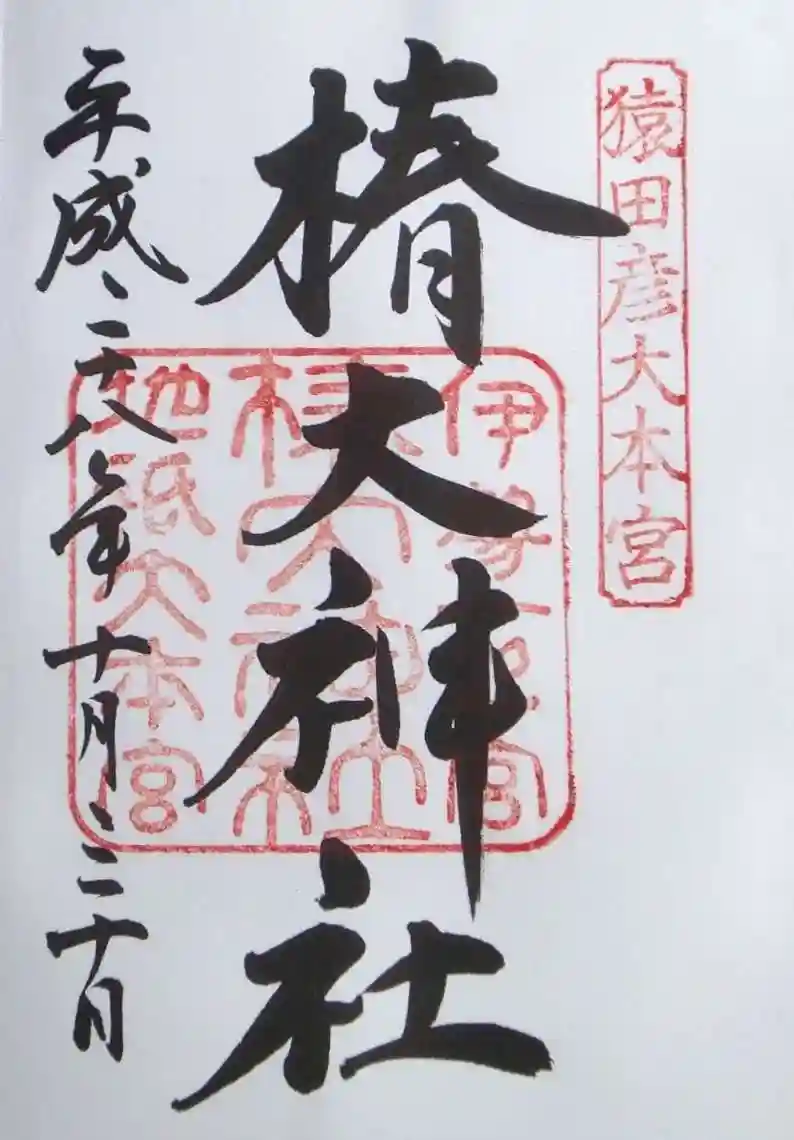 猿田彦大本宮
椿大神社
平成二十八年十月二十日
伊勢一宮
椿大神社
地祇大本宮